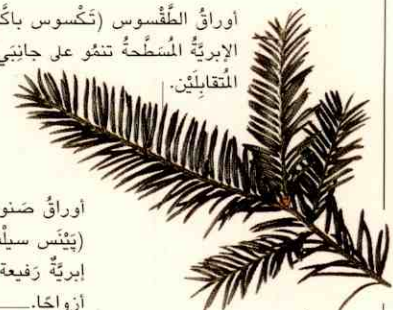 أوراقُ الطَّقْسوس (تَكْسوس
الإبريَّةُ المُسَطَّحةُ تنمُو على جانِبَي
المُتقابِلَيْن.
أوراقُ
(پَيْنَس
إبريَّةٌ رَفيعة
أزواجًا.